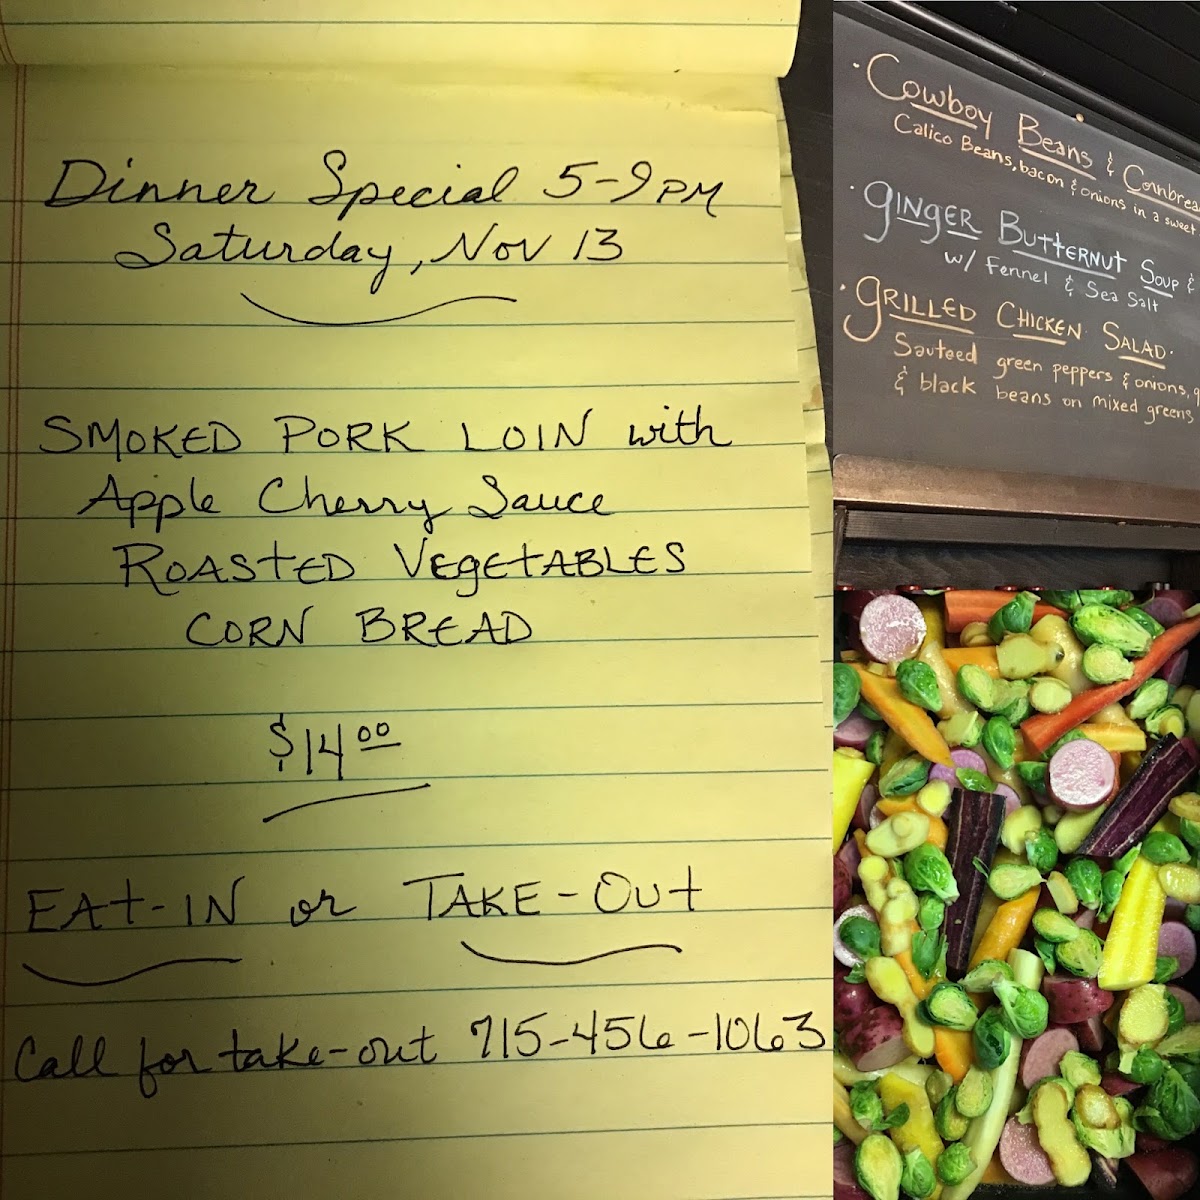 Dinner Special 5-9PM
Saturday, Nov 13
SMOKED PORK LOIN with
Apple Cherry Sauce
ROASTED VEGETABLES
CORN BREAD
$14.00
EAT-IN or TAKE-OUT
Call for take-out 715-456-1063
• Cowboy Beans & Cornbrea
Calico Beans, bacon & onions in a sweet
• GINGER BUTTERNUT SOUP &
w/ Fennel & Sea Salt
• GRILLED CHICKEN SALAD.
Sauteed green peppers & onions,
& black beans on mixed greens,